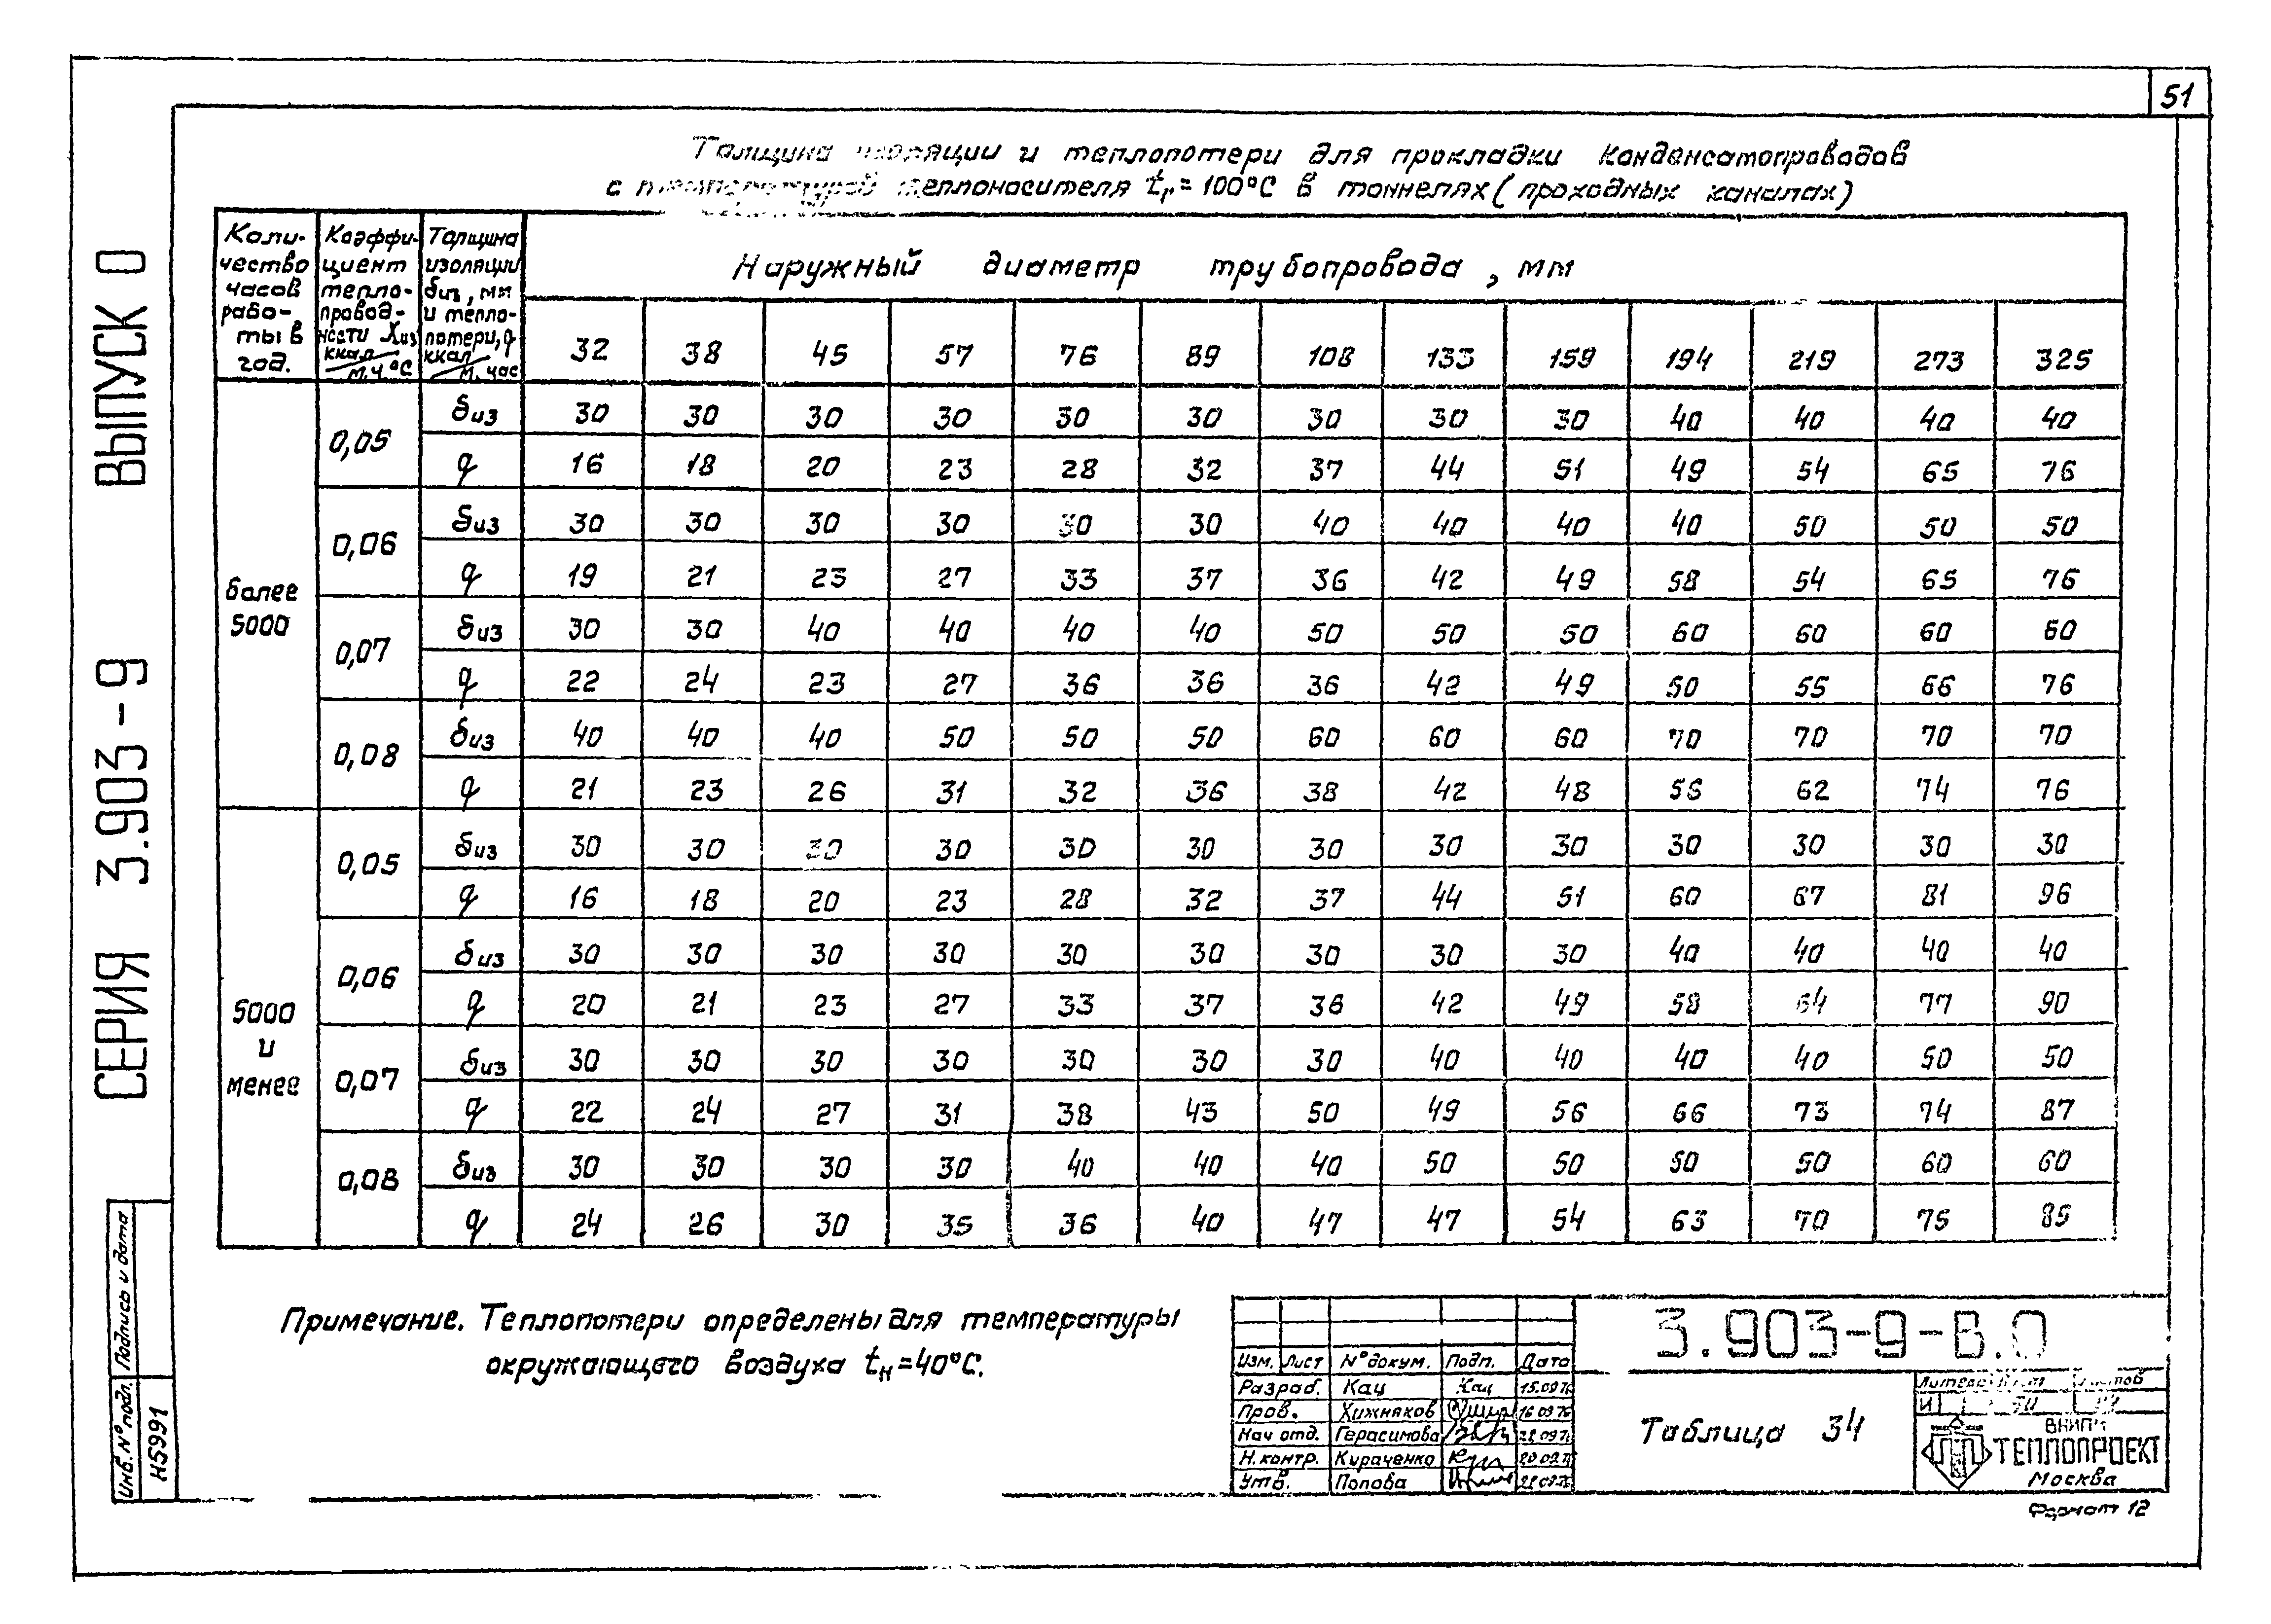 51
Толщина изоляции и теплопотери для прокладки конденсатопроводов
с температурой теплоносителя tг = 100°С в тоннелях (проходных каналах)
Коли-
чество
часов
рабо-
ты в
год.
Коэффи-
циент
тепло-
провод-
ности λиз
ккал / м.ч.°С
Толщина
изоляции
δиз, мм
и тепло-
потери, q
ккал / м. час
Наружный диаметр трубопровода, мм
32 38 45 57 76 89 108 133 159 194 219 273 325
более 5000
0,05 δиз 30 30 30 30 30 30 30 30 30 40 40 40 40
q 16 18 20 23 28 32 37 44 51 49 54 65 76
0,06 δиз 30 30 30 30 30 30 40 40 40 40 50 50 50
q 19 21 23 27 33 37 36 42 49 58 54 65 76
0,07 δиз 30 30 40 40 40 40 50 50 50 60 60 60 60
q 22 24 23 27 36 36 36 42 49 50 55 66 76
0,08 δиз 40 40 40 50 50 50 60 60 60 70 70 70 70
q 21 23 26 31 32 36 38 42 48 56 62 74 76
5000 и менее
0,05 δиз 30 30 30 30 30 30 30 30 30 30 30 30 30
q 16 18 20 23 28 32 37 44 51 60 67 81 96
0,06 δиз 30 30 30 30 30 30 30 30 30 40 40 40 40
q 20 21 23 27 33 37 36 42 49 58 64 77 90
0,07 δиз 30 30 30 30 30 30 30 40 40 40 40 50 50
q 22 24 27 31 38 43 50 49 56 66 73 74 87
0,08 δиз 30 30 30 30 40 40 40 50 50 50 50 60 60
q 24 26 30 35 36 40 47 47 54 63 70 75 85
Примечание. Теплопотери определены для температуры
окружающего воздуха tн = 40°С.
СЕРИЯ 3.903-9 ВЫПУСК 0
Подпись и дата
Инв. N° подл.
Н5991
3.903-9-В.0
Изм. Лист N° докум. Подп. Дата
Разраб. Кац Кац
Пров. Хижняков
Нач отд. Герасимова
Н. контр. Кираченко
Утв. Попова
Таблица 34
И
ТЕПЛОПРОЕКТ
Москва
Формат 12